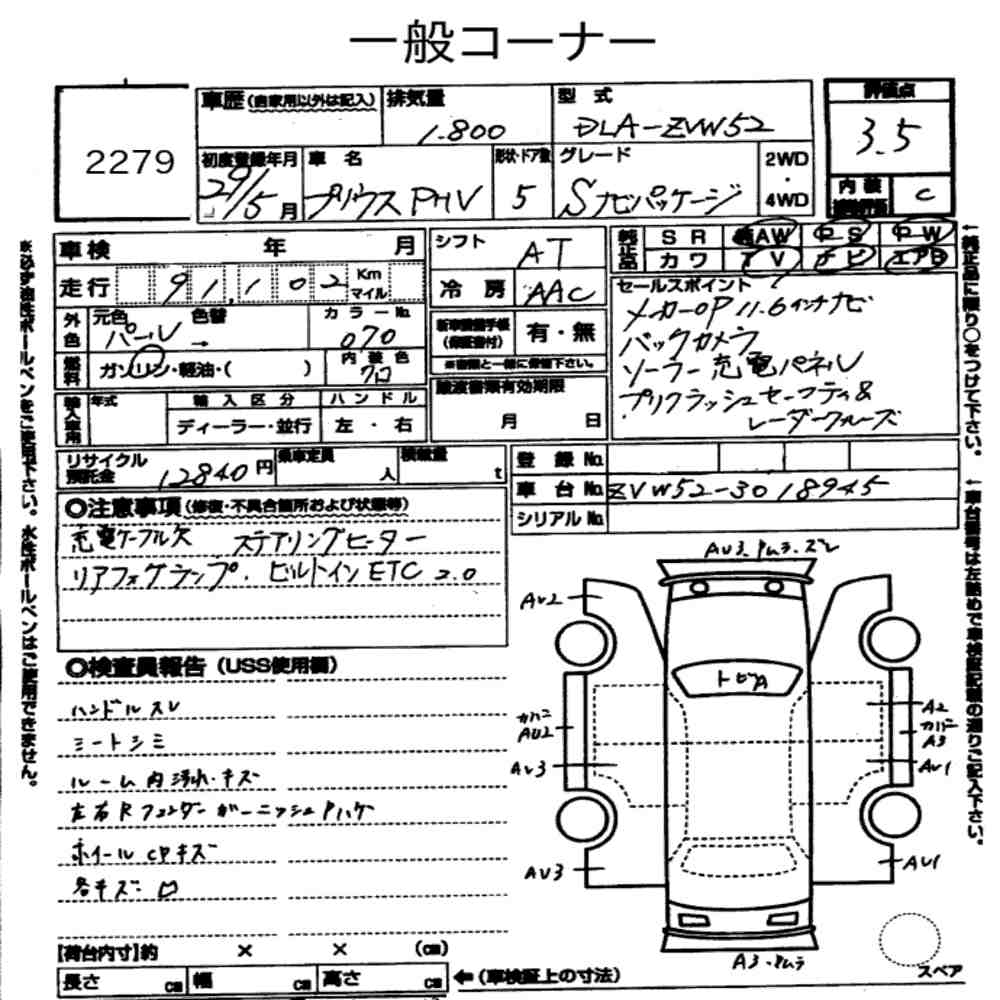 一般コーナー
2279
車歴(自家用以外は記入) 排気量 1.800 型式 DLA-ZVW52
評価点 3.5
初度登録年月 29/5月 車名 プリウスPHV 形状・ドア数 5 グレード Sナビパッケージ 2WD・4WD
内装 C
車検 年 月
シフト AT
純正品 SR AW PS PW
カワ TV ナビ エアB
走行 91,102 Km マイル
冷房 AAC
セールスポイント
メーカーOP 11.6インチナビ
バックカメラ
ソーラー充電パネル
プリクラッシュセーフティ&
レーダークルーズ
外色 元色 パール→ 色替 カラーNo. 070
新車整備手帳(保証書付) 有・無
※書類と一緒に保管下さい。
燃料 ガソリン・軽油・( ) 内装色 クロ
譲渡書類有効期限
月 日
輸入車用 年式 輸入区分 ディーラー・並行 ハンドル 左・右
リサイクル預託金 12840円 乗車定員 人 積載量 t
登録No.
車台No. ZVW52-3018945
シリアルNo.
◎注意事項(修復・不具合箇所および状態等)
充電ケーブル欠 ステアリングヒーター
リアフォグランプ. ビルトインETC2.0
◎検査員報告(USS使用欄)
ハンドルスレ
シートシミ
ルーム内汚れ・キズ
左右Rフェンダーガーニッシュ Pハゲ
ホイールCPキズ
各キズ
AU2
トビA
カバー
AU2
AU3
AU3
A2
カバー
A3
AU1
AU1
スペア
【荷台内寸】約 × × (cm)
長さ cm 幅 cm 高さ cm ←(車検証上の寸法)
※必ず油性ボールペンをご使用下さい。水性ボールペンはご使用できません。
←純正品に限り○をつけて下さい。
←車台番号は左詰めで車検証記載の通りご記入下さい。